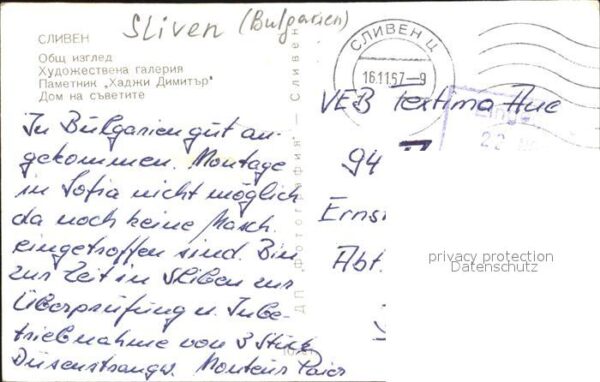 Sliven (Bulgarien)
СЛИВЕН
Общ изглед
Художествена галерия
Паметник „Хаджи Димитър“
Дом на съветите
In Bulgarien gut an-
gekommen. Montage
in Sofia nicht möglich
da noch keine Masch.
eingetroffen sind. Bin
zur Zeit in Sliben zur
Überprüfung u. Inbe-
triebnahme von 3 Stück
Düsenstrangw. Monteur
ДП „Фотография“ — Сливен
СЛИВЕН Ц
16.11.67-9
VEB Textima
94
Ernst
Abt.
privacy protection
Datenschutz